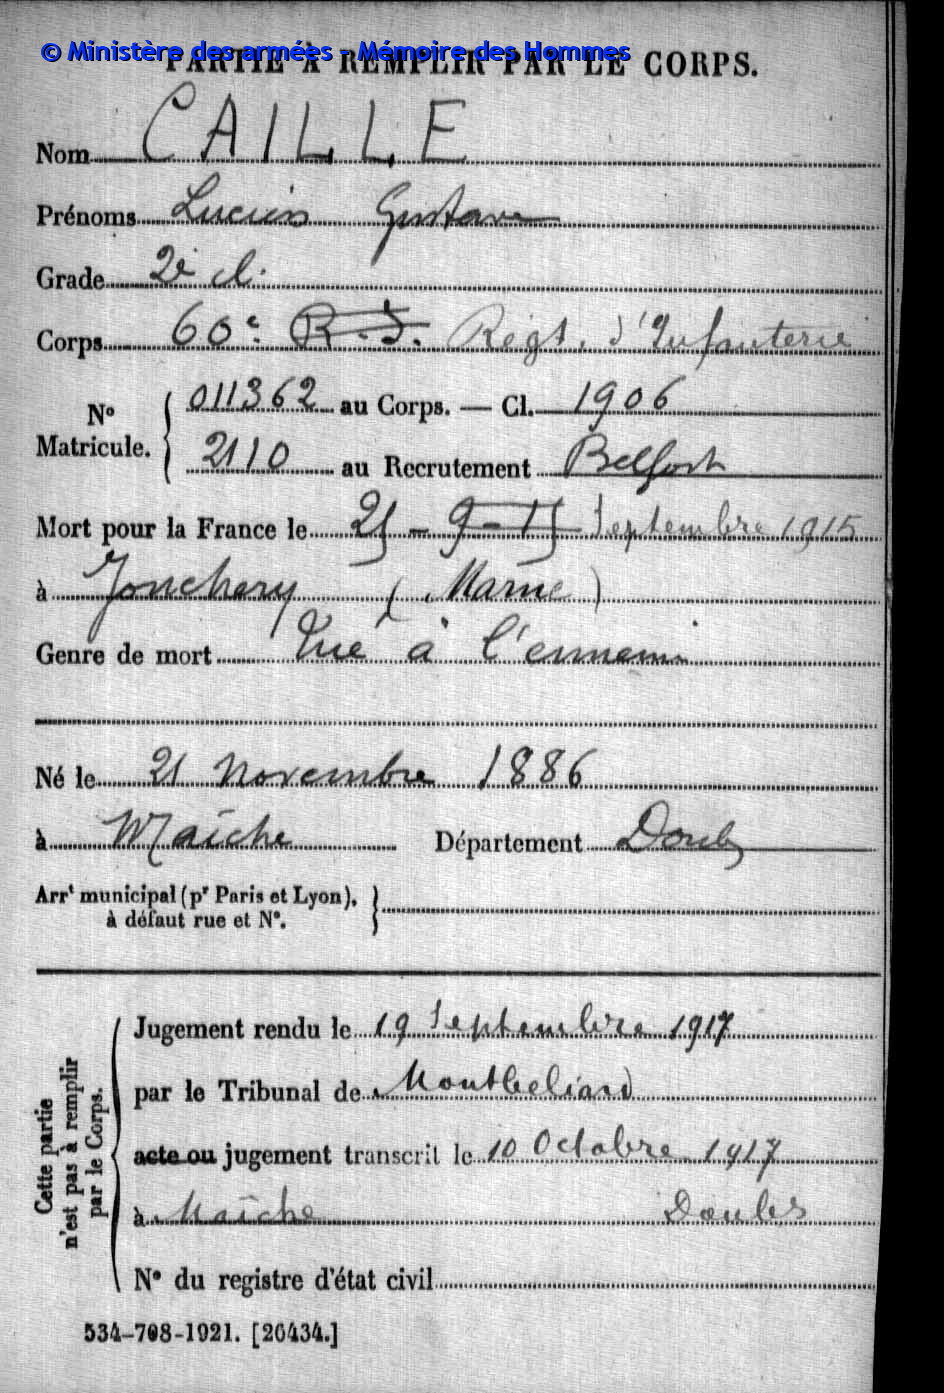 © Ministère des armées - Mémoire des Hommes
PARTIE À REMPLIR PAR LE CORPS.
Nom CAILLE
Prénoms Lucien Gustave
Grade 2e cl.
Corps 60e R.I. Régt. d'Infanterie
No Matricule. { 011362 au Corps. — Cl. 1906
2110 au Recrutement Belfort
Mort pour la France le 25 - 9 - 15 Septembre 1915
à Jonchery (Marne)
Genre de mort Tué à l'ennemi
Né le 21 Novembre 1886
à Maîche Département Doubs
Arrt municipal (pr Paris et Lyon), à défaut rue et No. }
Cette partie n'est pas à remplir par le Corps.
Jugement rendu le 19 Septembre 1917
par le Tribunal de Montbeliard
acte ou jugement transcrit le 10 Octobre 1917
à Maîche Doubs
No du registre d'état civil
534-708-1921. [26434.]